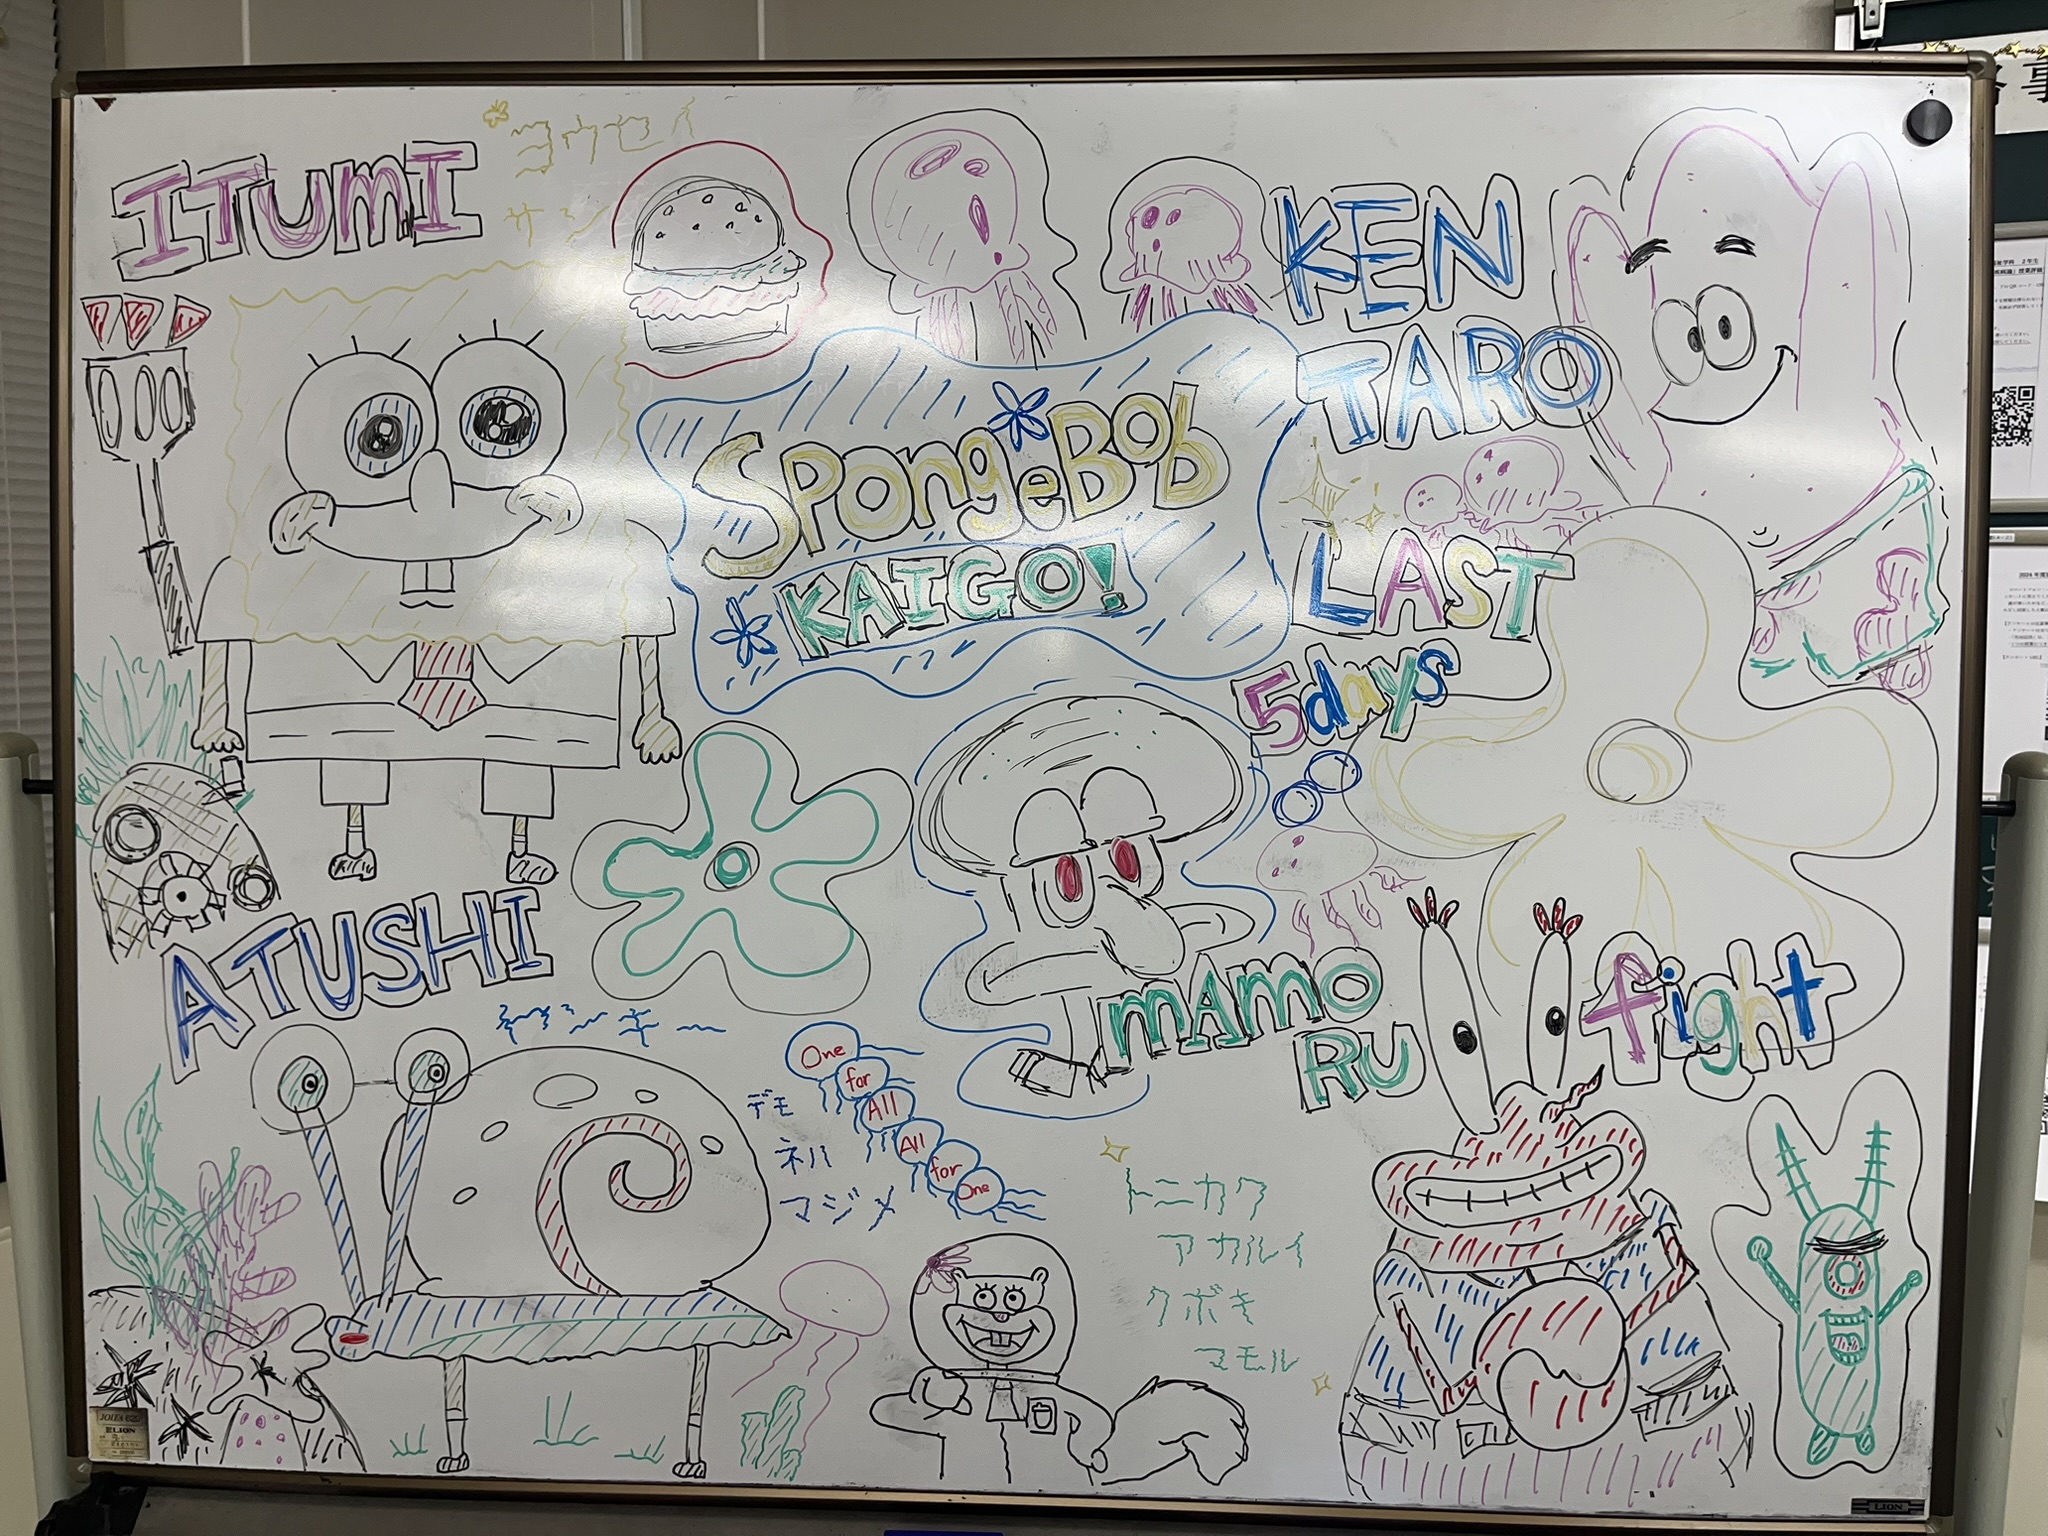 ITUMI
ヨウセイ
サン
KEN
TARO
SPongeBob
KAIGO!
LAST
5days
ATUSHI
MAMO
RU
fight
One
for
All
All
for
One
デモ
ネハ
マジメ
トニカク
アカルイ
クボキ
マモル
LION
LION